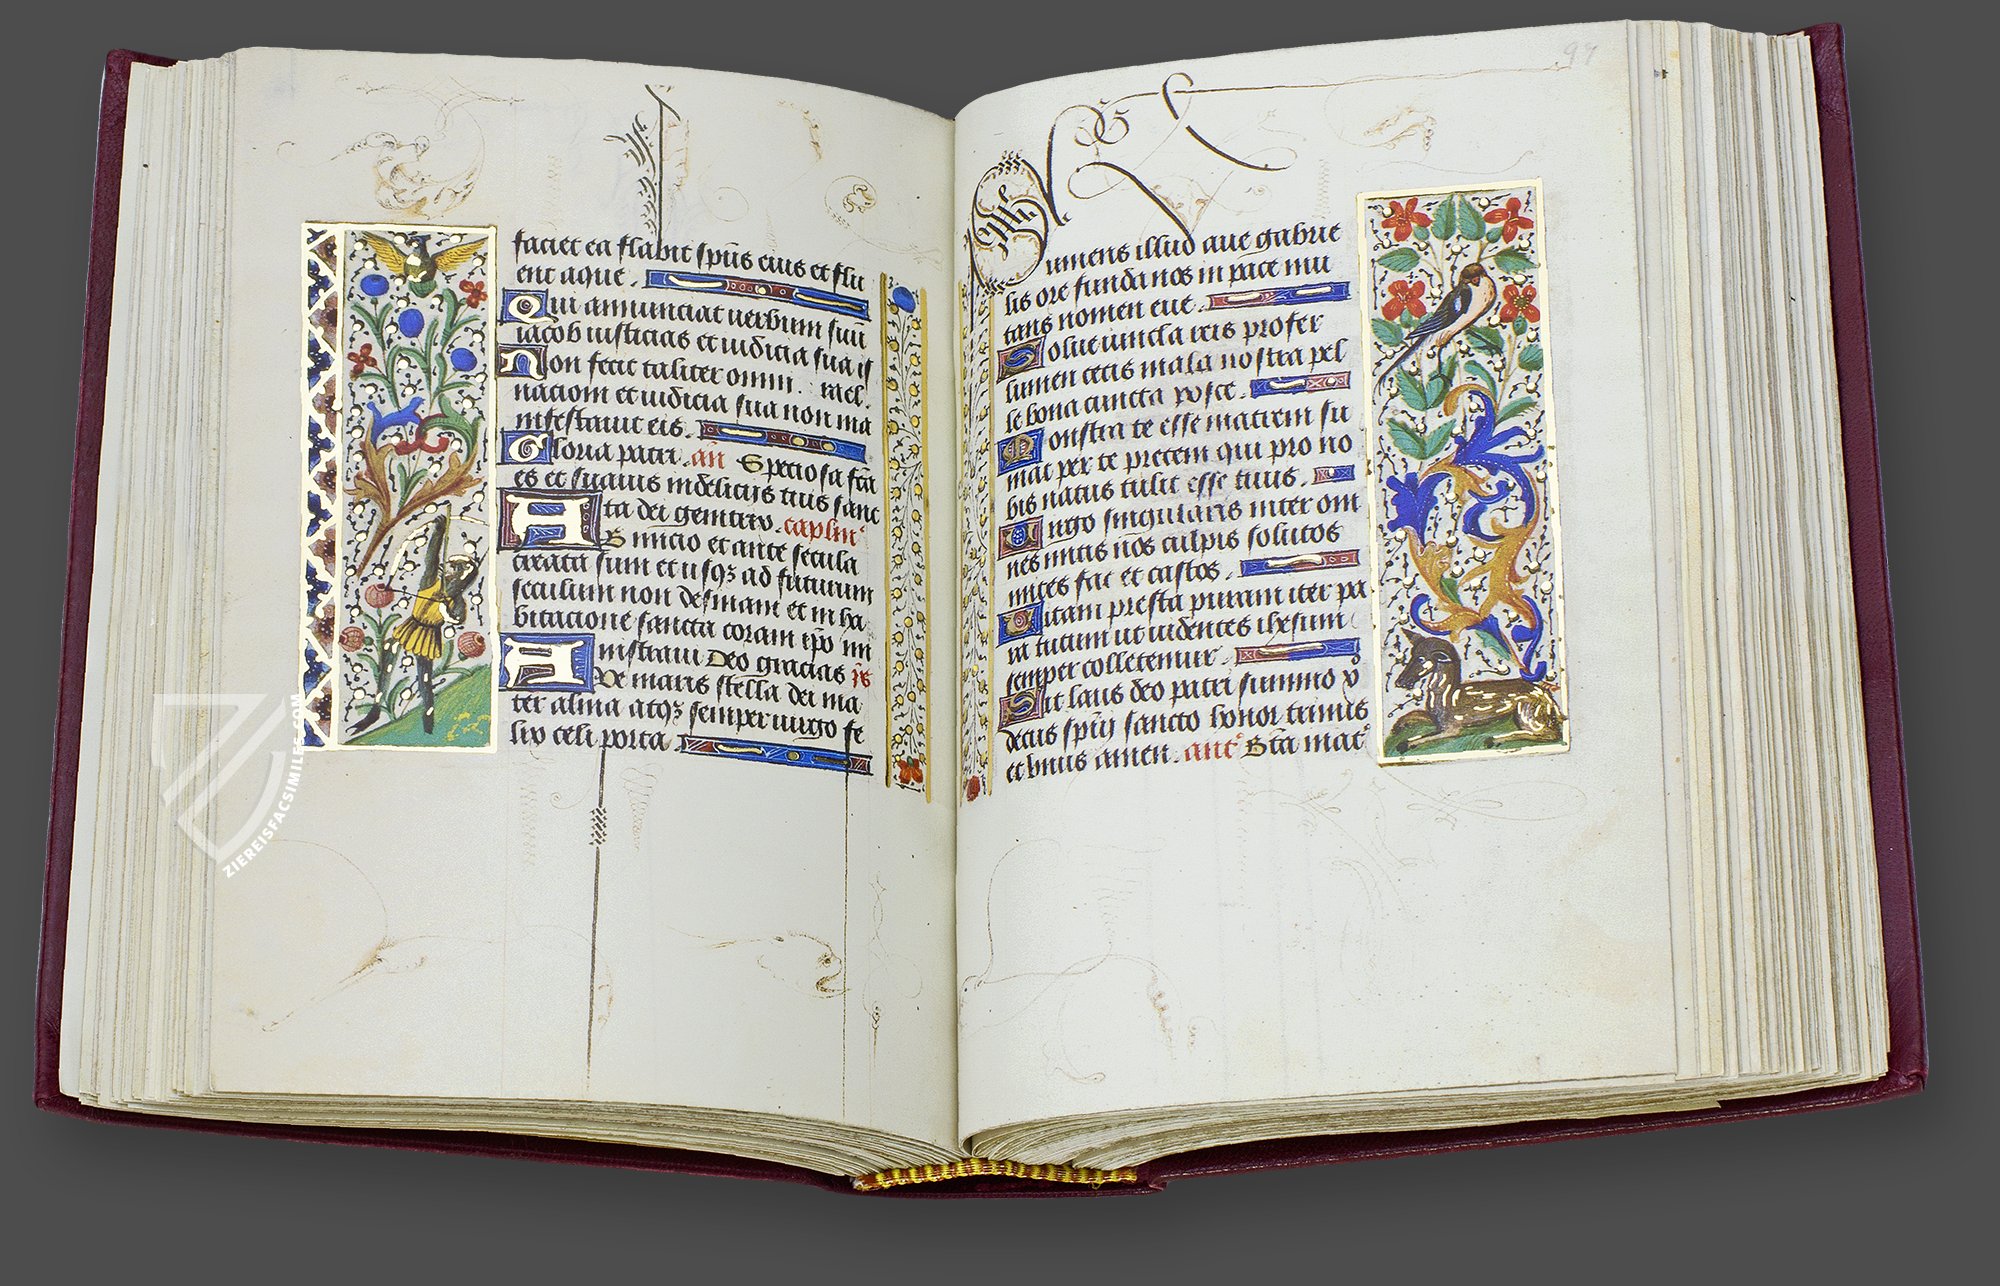 faciet ea flabit spūs eius et flu
ent aque.
Qui annunciat uerbum suū
iacob iusticias et iudicia sua is
Non fecit taliter omni : rael.
nacioni et iudicia sua non ma
nifestauit eis.
Gloria patri. an Speciosa fca
es et suauis in delicijs tuis sanc
ta dei genitrix. caplm
Ab inicio et ante secula
creata sum et usqz ad futurum
seculum non desinam et in ha
bitacione sancta coram ipo mi
nistraui Deo gracias
Aue maris stella dei ma
ter alma atqz semper uirgo fe
lix celi porta.
97
Sumens illud aue gabrie
lis ore funda nos in pace mu
tans nomen eue.
Solue uincla reis profer
lumen cecis mala nostra pel
le bona cuncta posce.
Monstra te esse matrem su
mat per te precem qui pro no
bis natus tulit esse tuus.
Uirgo singularis inter om
nes mitis nōs culpis solutos
mites fac et castos.
Uitam presta puram iter pa
ra tutum ut uidentes ihesum
semper colletemur.
Sit laus deo patri summo xp̄o
decus spūi sancto honor trinus
et unus amen. ant Bta mat
ZIEREISFACSIMILES.COM